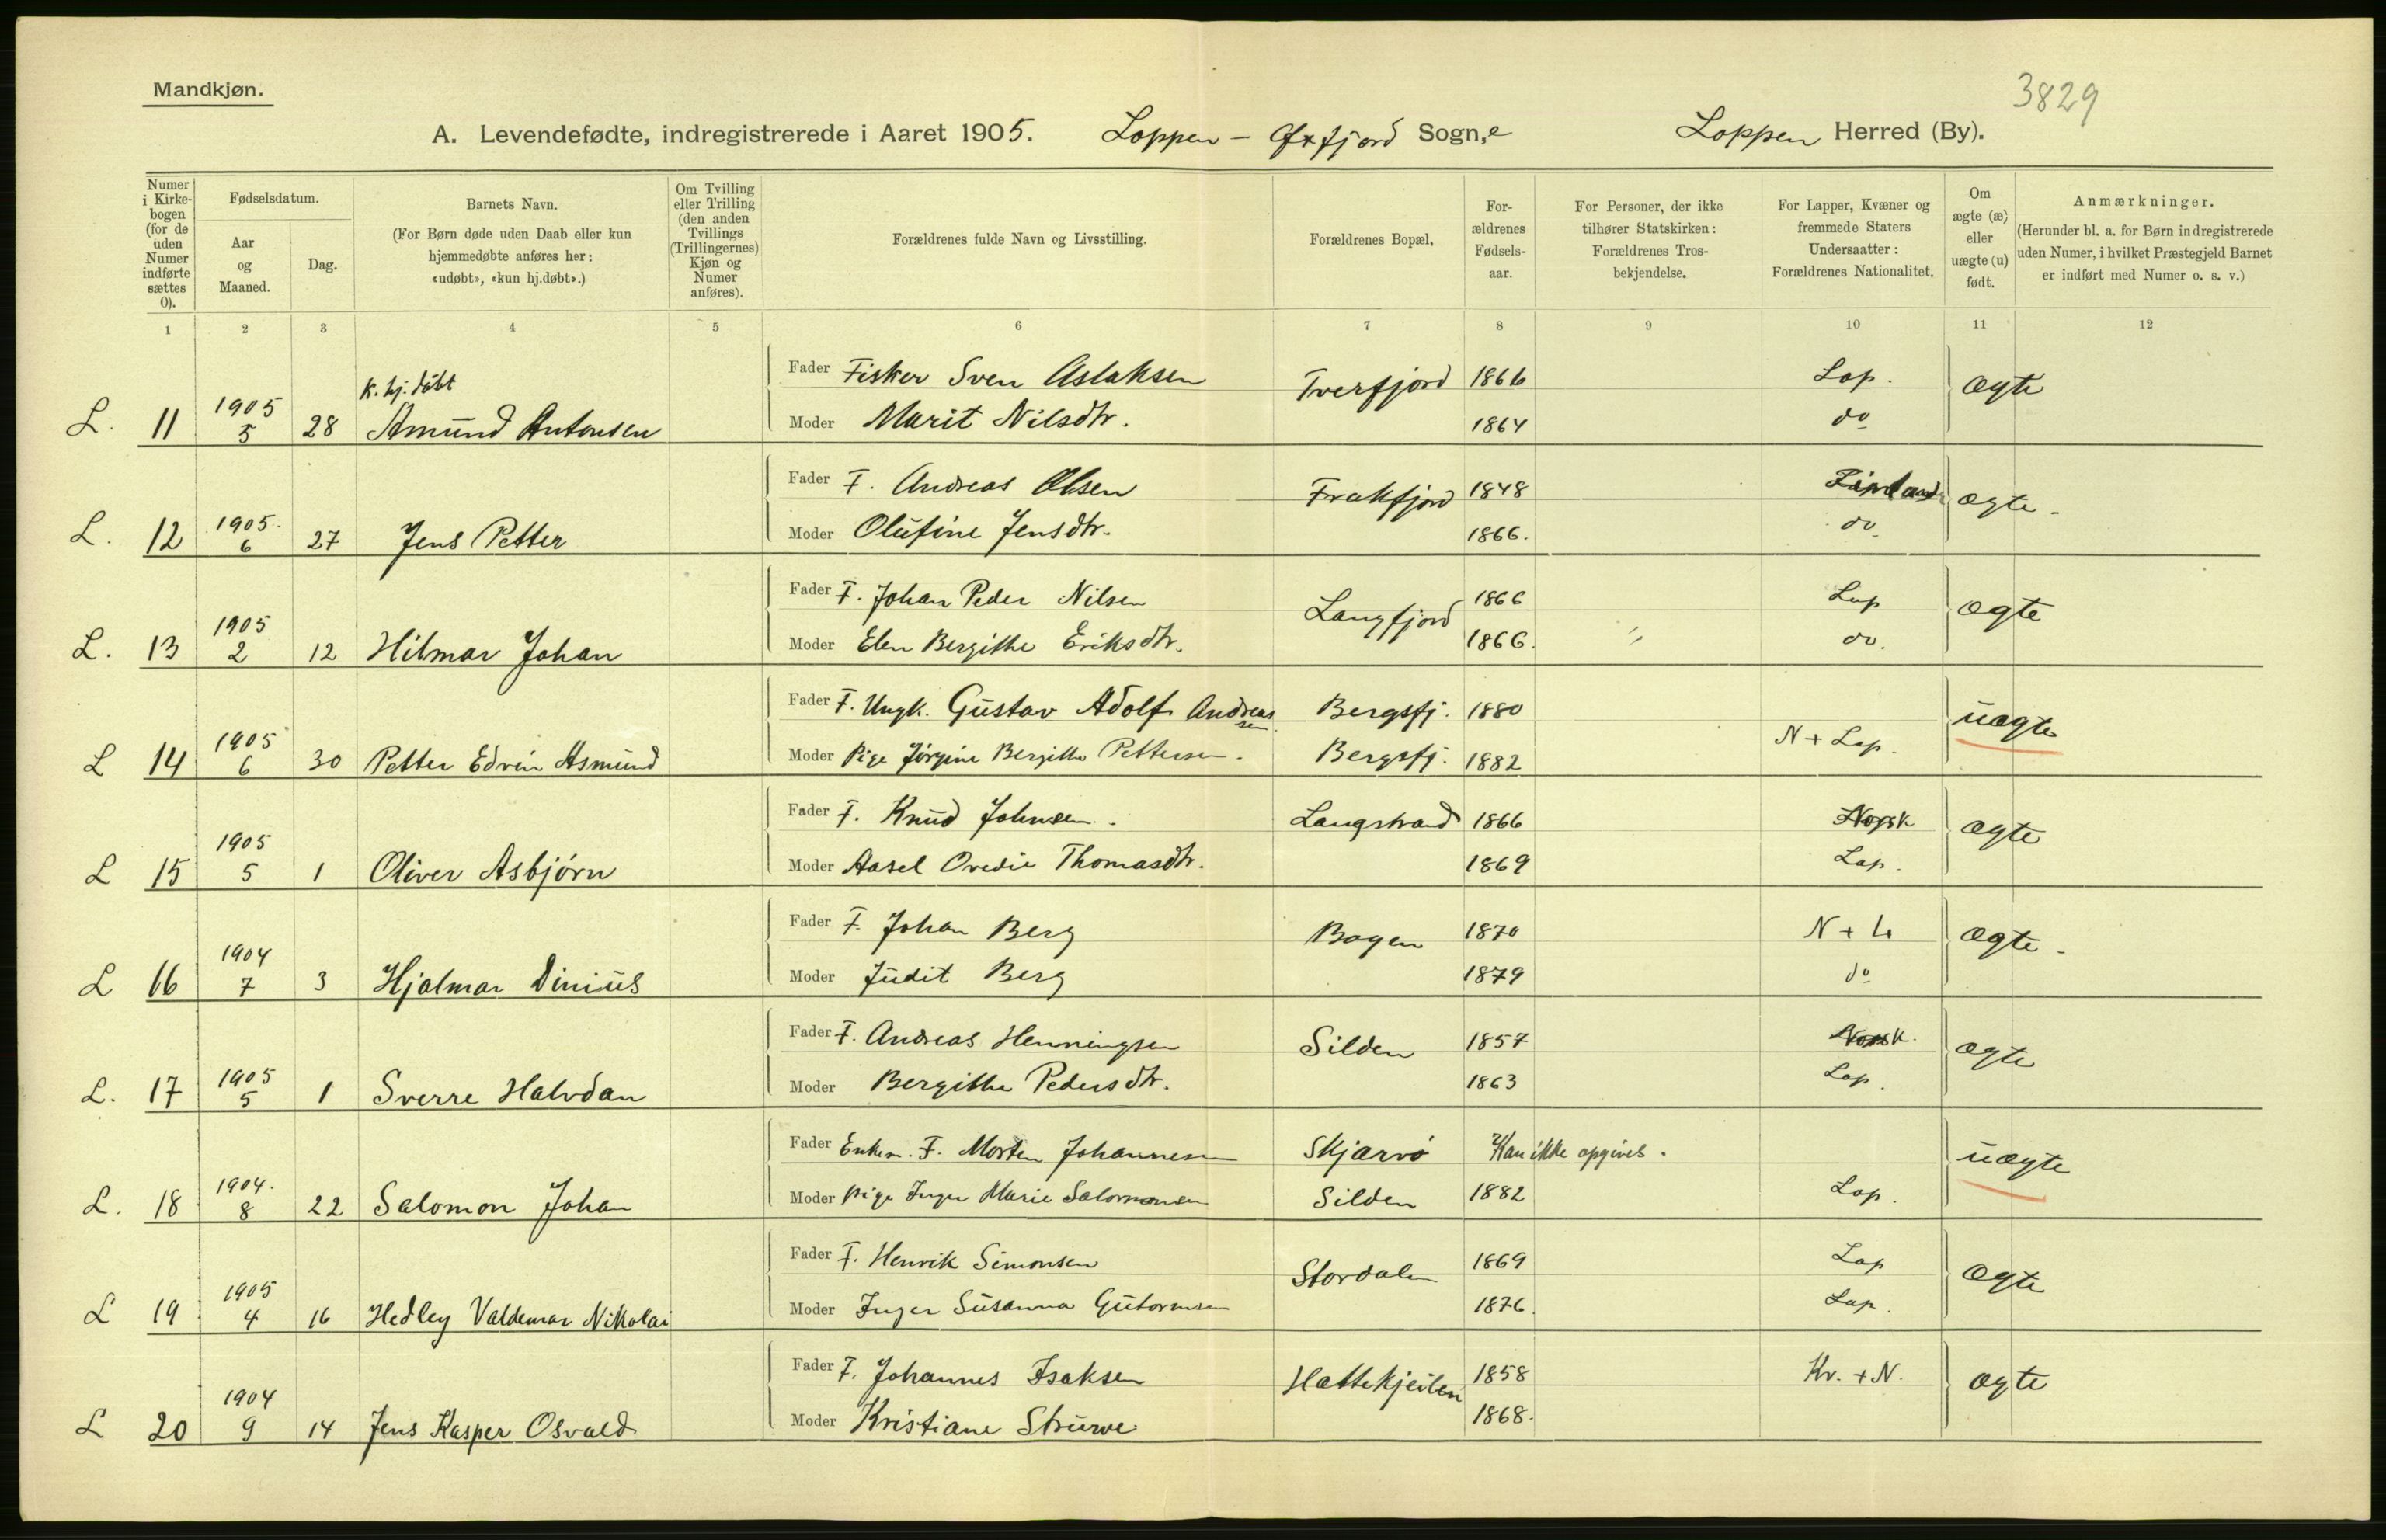 3829
Mandkjøn.
A. Levendefødte, indregistrerede i Aaret 1905. Loppen - Øxfjord Sogn,e Loppen Herred (By).
Numer i Kirkebogen (for de uden Numer indførte sættes 0).
Fødselsdatum.
Aar og Maaned.
Dag.
Barnets Navn.
(For Børn døde uden Daab eller kun hjemmedøbte anføres her: «udøbt», «kun hj.døbt».)
Om Tvilling eller Trilling (den anden Tvillings (Trillingernes) Kjøn og Numer anføres).
Forældrenes fulde Navn og Livsstilling.
Forældrenes Bopæl.
Forældrenes Fødselsaar.
For Personer, der ikke tilhører Statskirken: Forældrenes Trosbekjendelse.
For Lapper, Kvæner og fremmede Staters Undersaatter: Forældrenes Nationalitet.
Om ægte (æ) eller uægte (u) født.
Anmærkninger.
(Herunder bl. a. for Børn indregistrerede uden Numer, i hvilket Præstegjeld Barnet er indført med Numer o. s. v.)
1 2 3 4 5 6 7 8 9 10 11 12
k. hj. døbt
L. 11 1905 5 28 Amund Antonsen Fader Fisker Sven Aslaksen Tverfjord 1866 Lap. ægte
Moder Marit Nilsdtr. 1864 do
L. 12 1905. 6 27 Jens Petter Fader F. Andreas Olsen Frakfjord 1848 ægte.
Moder Olufine Jensdtr. 1866. do
L. 13 1905 2 12 Hilmar Johan Fader F. Johan Peder Nilsen Langfjord 1866 Lap ægte
Moder Elen Bergithe Eriksdtr. 1866. do.
L 14 1905 6 30 Petter Edvin Asmund Fader F. Ungk. Gustav Adolf Andreassen. Bergsfj. 1880 uægte
Moder Pige Jørgine Bergitte Pettersen. Bergsfj. 1882 N + Lap.
L 15 1905 5 1 Oliver Asbjørn Fader F. Knud Johnsen. Langstrand 1866 Norsk ægte
Moder Aasel Ovedie Thomasdtr. 1869 Lap.
L 16 1904 7 3 Hjalmar Dinius Fader F. Johan Berg Bogen 1870 N + L ægte.
Moder Judit Berg 1879 do
L. 17 1905 5 1 Sverre Halvdan Fader F. Andreas Henningsen Silden 1857 Norsk. ægte
Moder Bergithe Pedersdtr. 1863 Lap.
L. 18 1904. 8 22 Salomon Johan Fader Enkem. F. Morten Johannesen Skjærvø Kan ikke opgives. uægte
Moder pige Inger Marie Salomonsen Silden 1882 Lap.
L 19 1905 4 16 Hedley Valdemar Nikolai Fader F. Henrik Simonsen Stordalen 1869 Lap ægte
Moder Inger Susanna Gutormsen 1876. Lap.
L 20 1904 9 14 Jens Kasper Osvald Fader F. Johannes Isaksen Hattekjeilen 1858 Kv. + N. ægte
Moder Kristiane Struwe 1868.